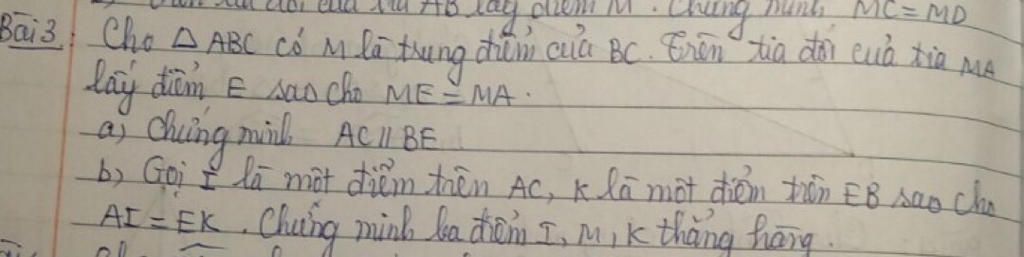 của tia AB lấy điểm M. Chứng minh MC = MD
Bài 3 Cho △ ABC có M là trung điểm của BC. Trên tia đối của tia MA
lấy điểm E sao cho ME = MA.
a) Chứng minh AC // BE
b) Gọi I là một điểm trên AC, K là một điểm trên EB sao cho
AI = EK. Chứng minh ba điểm I, M, K thẳng hàng.